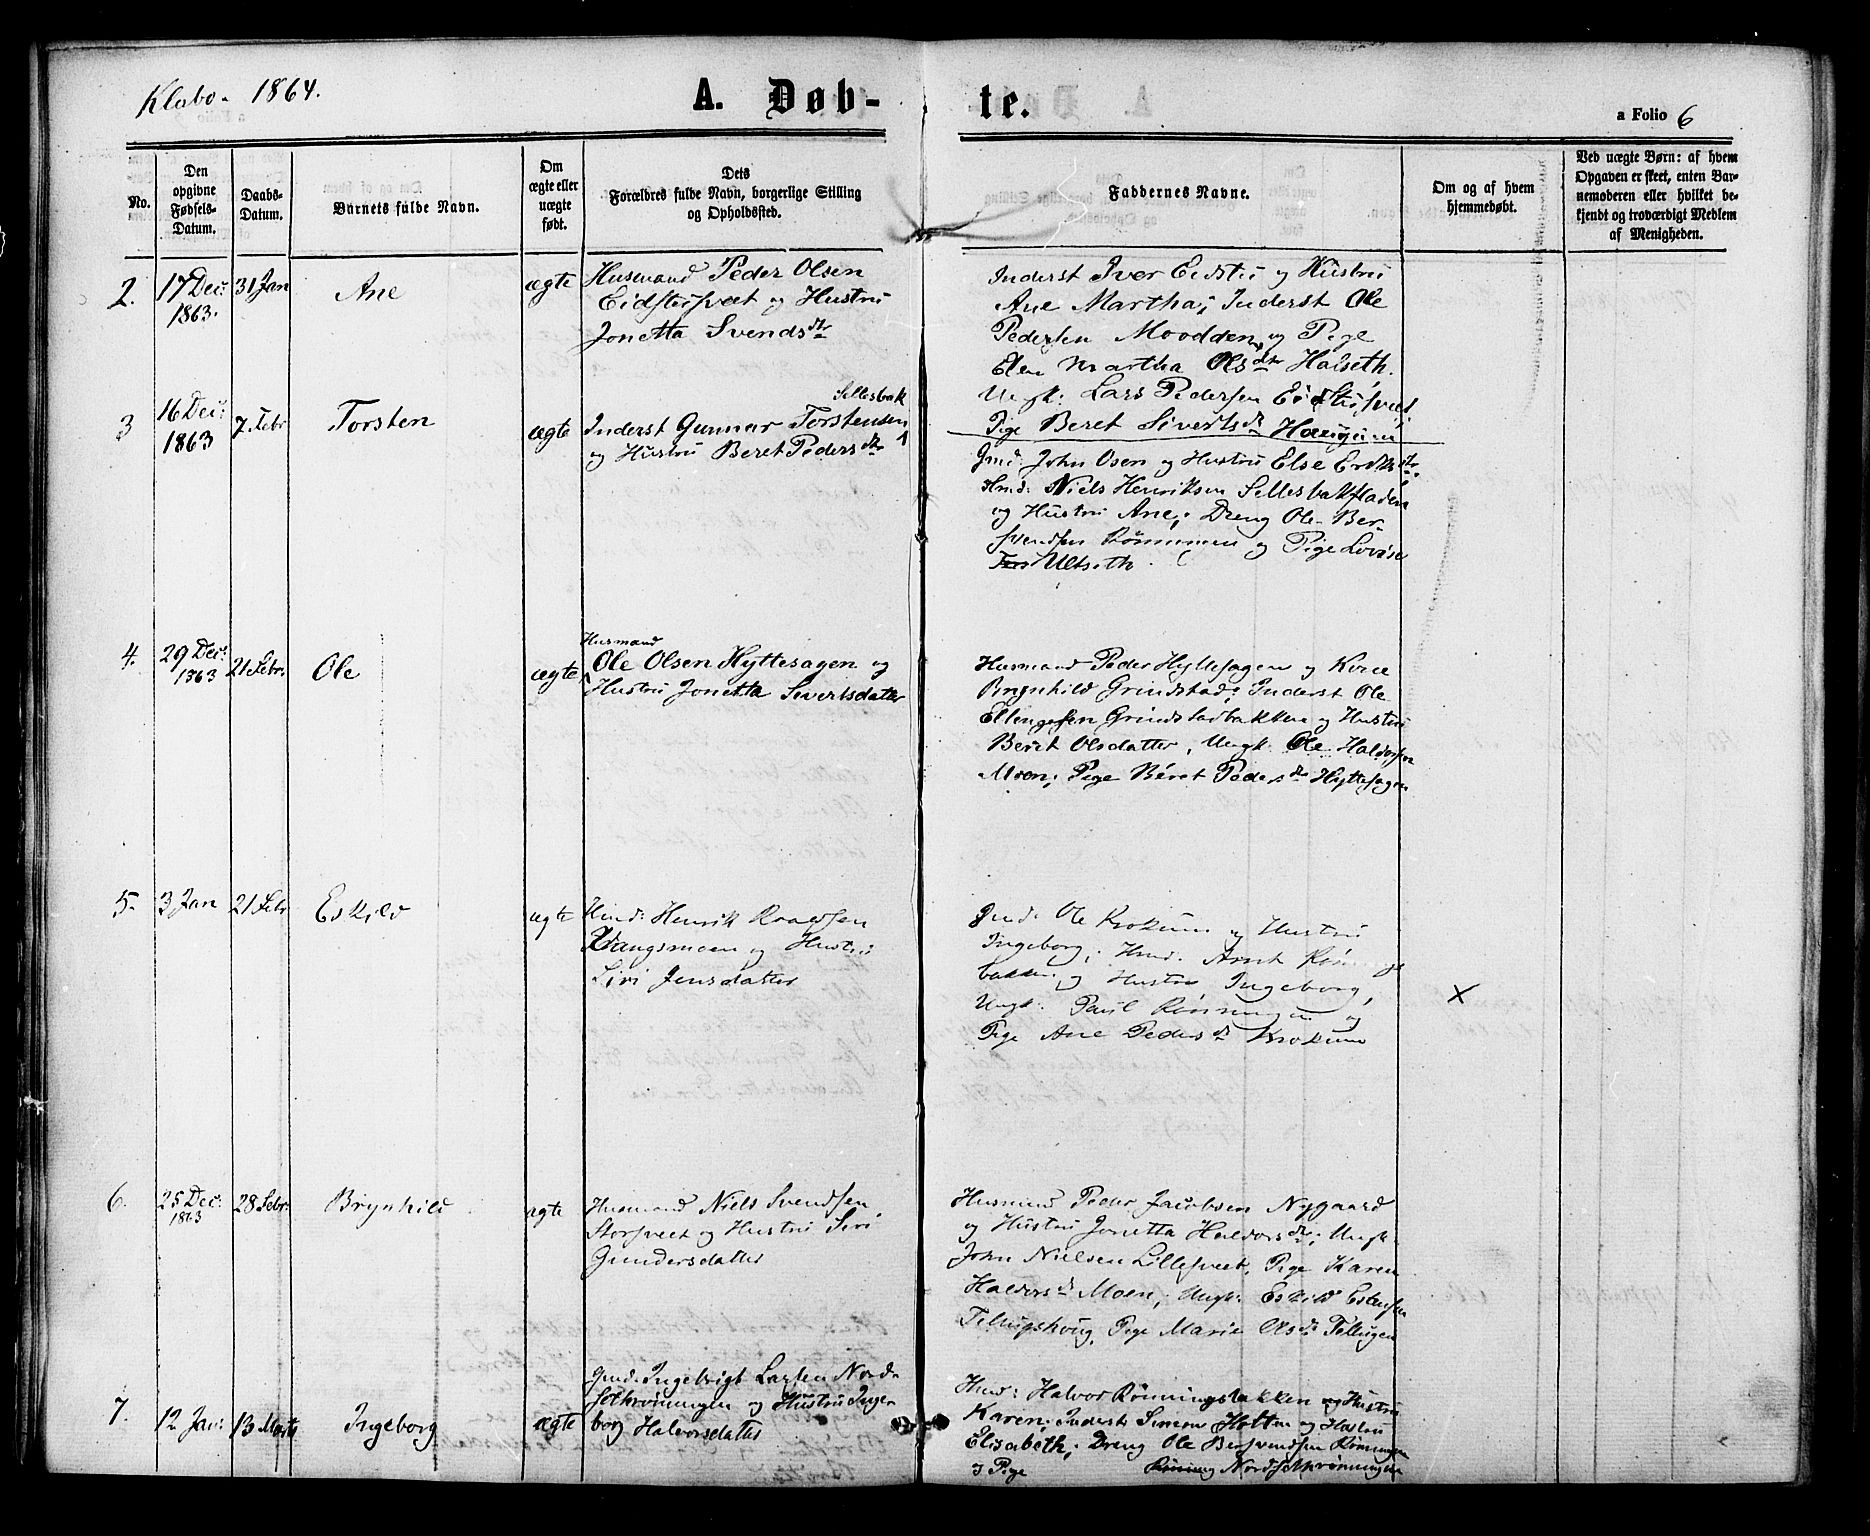 Klabo. 1864.
A. Døb-
te.
a Folio 6
No.
Den
opgivne
Fødsels-
Datum.
Daabs-
Datum.
Barnets fulde Navn.
Om
ægte eller
uægte
født.
Dets
Forældres fulde Navn, borgerlige Stilling
og Opholdssted.
Faddernes Navne.
Om og af hvem
hjemmedøbt.
Ved uægte Børn: af hvem
Opgaven er skeet, enten Bar-
nemoderen eller hvilket be-
kjendt og troværdigt Medlem
af Menigheden.
2.
17 Dec:
1863.
31 Jan
Ane
ægte
Husmand Peder Olsen
Eidstusveet og Hustru
Jonetta Svendsdtr
Inderst Iver Eidstu og Hustru
Ane Martha; Inderst Ole
Pedersen Moodden og Pige
Elen Martha Olsdtr Halseth.
Ungk: Lars Pedersen Eidstusveet,
Pige Beret Sivertsdr Haugum
3
16 Dec:
1863
7 Febr
Torsten
ægte
Sellesbak
Inderst Gunnar Torstensen
og Hustru Beret Pedersdtr
Gmd: John Osen og Hustru Else
Hmd: Niels Henriksen Sellesbakfladen
og Hustru Ane; Dreng Ole Ber-
svendsen Rønningen og Pige Lovise
Ulseth.
4.
29 Dec:
1863
21 Febr:
Ole
ægte
Husmand
Ole Olsen Hyttesagen og
Hustru Jonetta Sivertsdatter
Husmand Peder Hyttesagen og Kone
Brynhild Grindstad; Inderst Ole
Ellingsen Grindstadbakken og Hustru
Beret Olsdatter, Ungk. Ole Haldorsen
Moen; Pige Beret Pedersdr Hyttesagen
5.
3 Jan
21 Febr
Eskild
ægte
Hmd: Henrik
Vangsmoen og Hustru
Siri Jensdatter
Gmd: Ole Krokum og Hustru
Ingeborg; Hmd: Arnt
bakken og Hustru Ingeborg,
Ungk: Paul Rønningen og
Pige Ane Pedersdr Krokum
X
6.
25 Dec:
1863
28 Febr:
Brynhild
ægte
Husmand Niels Svendsen
Storsveet og Hustru Siri
Gundersdatter
Husmand Peder Jacobsen Nygaard
og Hustru Jonetta Haldorsdr; Ungk.
John Nielsen Lillesveet, Pige Karen
Haldorsdr Moen; Ungk: Eskild Estensen
Tellugshoug, Pige Marie Olsdr Tellugen
7.
12 Jan:
13 Marts
Ingeborg
ægte
Gmd: Ingebrigt Larsen Nord-
sethrønningen og Hustru Inge-
borg Halvorsdatter
Hmd: Halvor Rønningsbakken og Hustru
Karen; Inderst Simon Holten og Hustru
Elisabeth; Dreng Ole Bersvendsen Rønningen
og Pige Nordsethrønningen